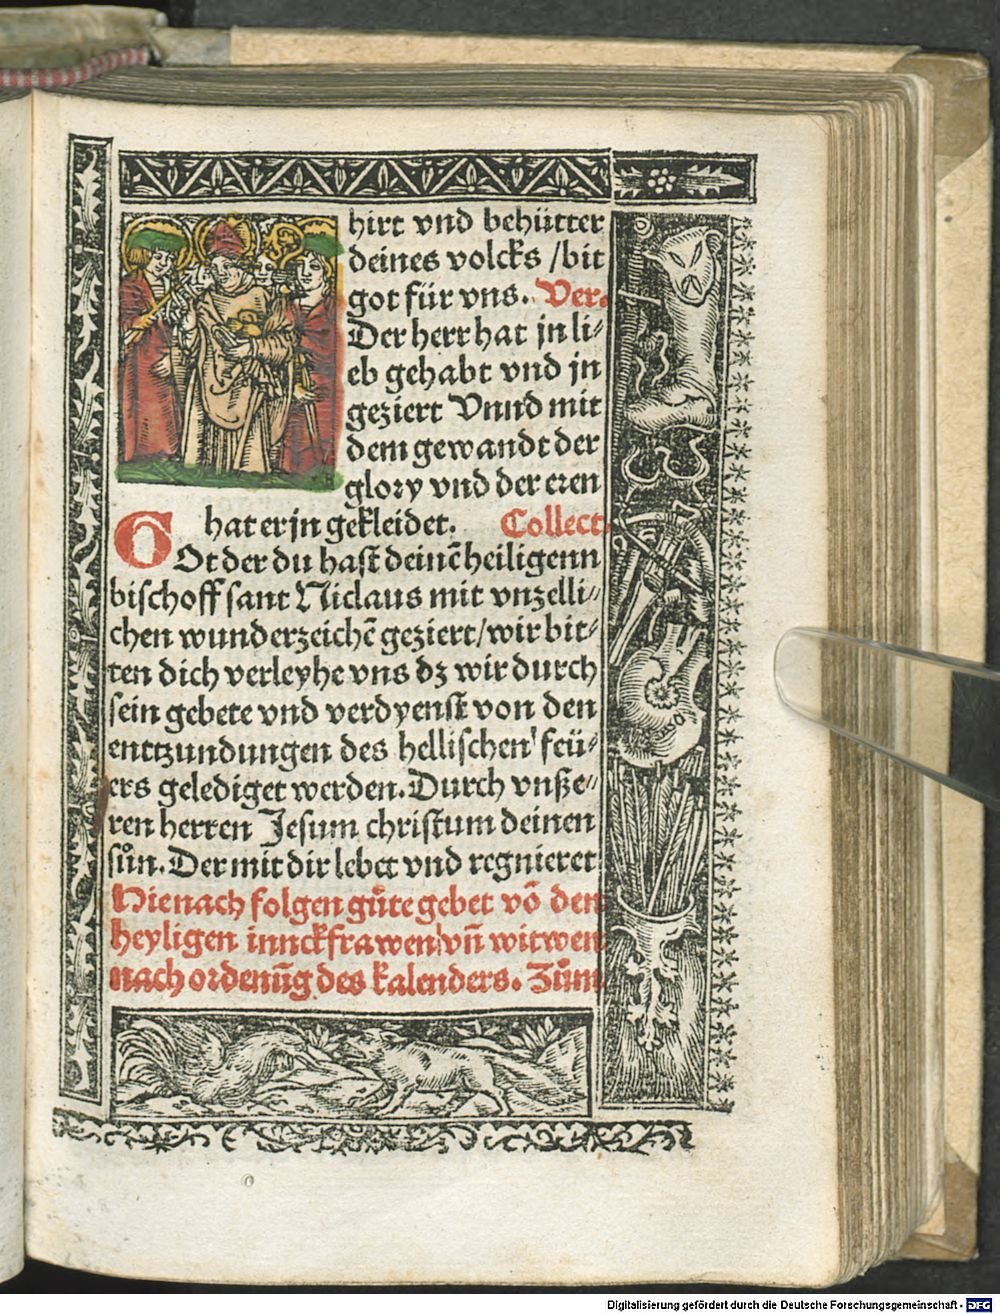 hirt vnd behütter
deines volcks /bit
got für vns. Ver.
Der herr hat jn li⸗
eb gehabt vnd jn
geziert Vnnd mit
dem gewandt der
glory vnd der eren
hat er jn gekleidet. Collect.
GOt der du hast deinē heiligenn
bischoff sant Niclaus mit vnzelli⸗
chen wunderzeichē geziert/wir bit⸗
ten dich verleyhe vns dz wir durch
sein gebete vnd verdyenst von den
enttzundungen des hellischen feü⸗
ers gelediget werden. Durch vnße⸗
ren herren Jesum christum deinen
sůn. Der mit dir lebet vnd regnieret
Hienach folgen gůte gebet vō den
heyligen innckfrawen vñ witwen
nach ordenūg des kalenders. Zům
Digitalisierung gefördert durch die Deutsche Forschungsgemeinschaft - DFG